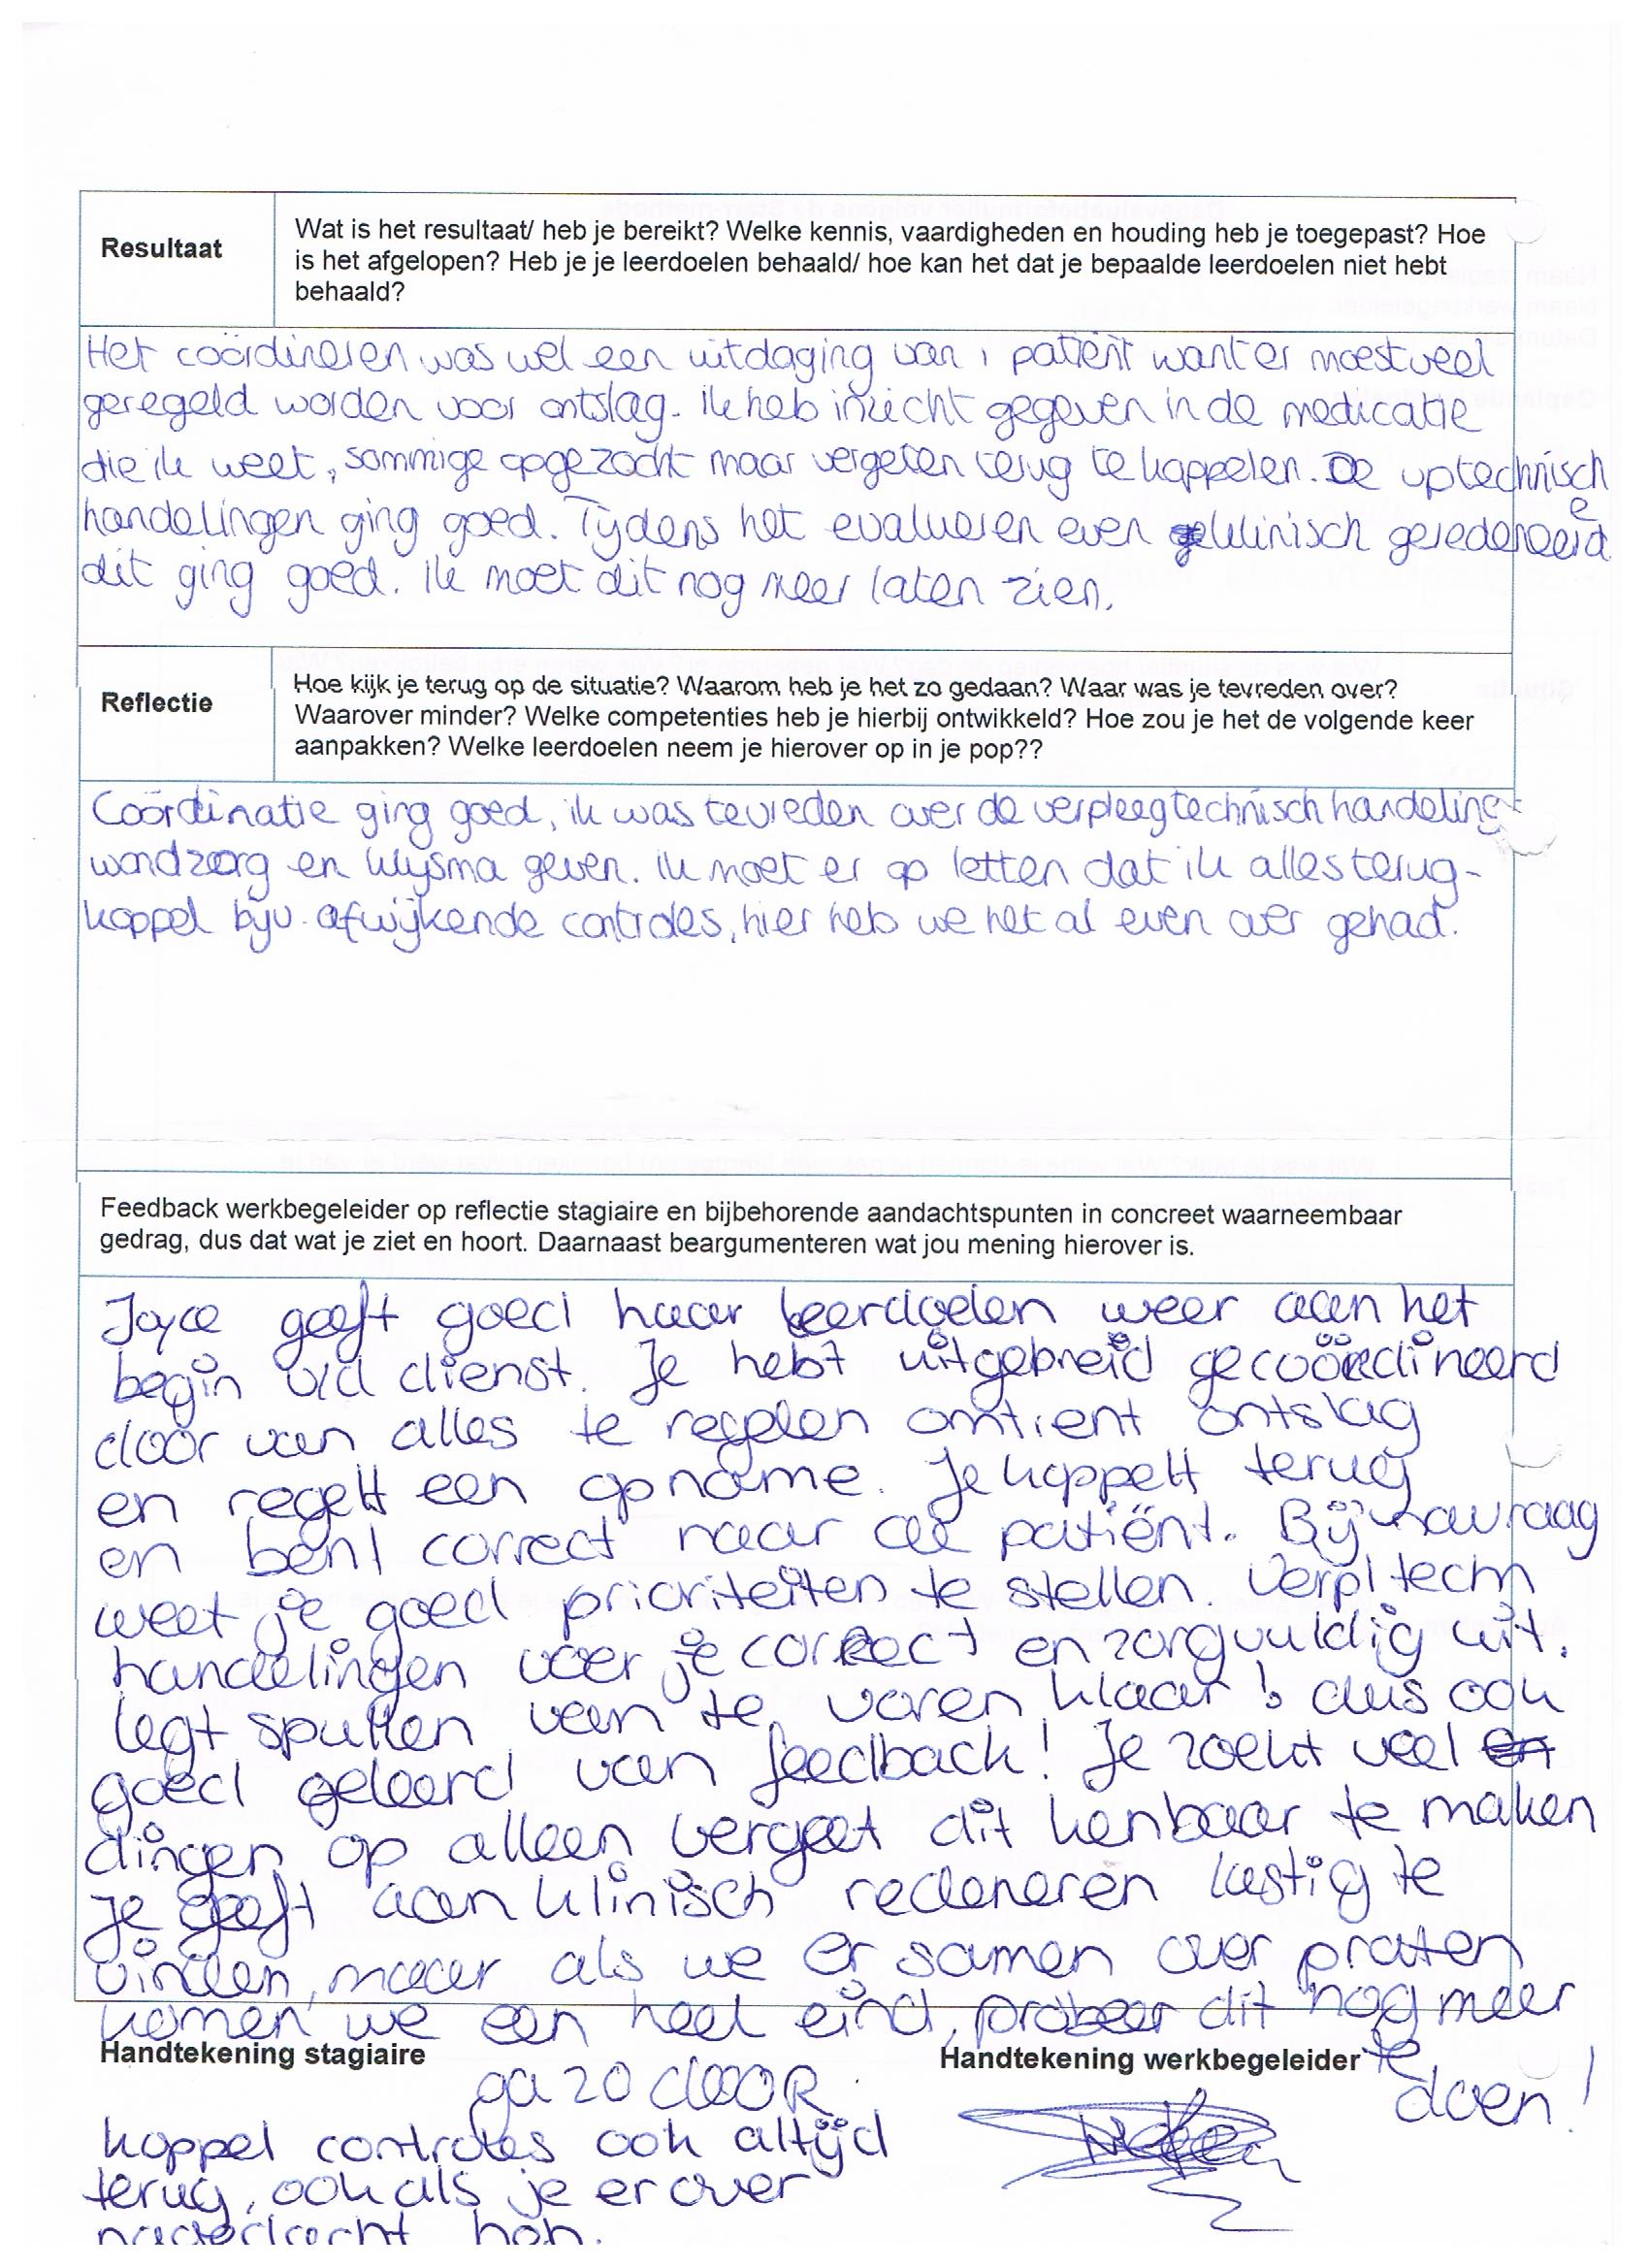 Resultaat
Wat is het resultaat/ heb je bereikt? Welke kennis, vaardigheden en houding heb je toegepast? Hoe
is het afgelopen? Heb je je leerdoelen behaald/ hoe kan het dat je bepaalde leerdoelen niet hebt
behaald?
Het coördineren was wel een uitdaging van 1 patiënt want er moest veel
geregeld worden voor ontslag. Ik heb inzicht gegeven in de medicatie
die ik weet, sommige opgezocht maar vergeten terug te koppelen. De vptechnisch
e
handelingen ging goed. Tijdens het evalueren even klinisch geredeneerd
dit ging goed. Ik moet dit nog meer laten zien.
Reflectie
Hoe kijk je terug op de situatie? Waarom heb je het zo gedaan? Waar was je tevreden over?
Waarover minder? Welke competenties heb je hierbij ontwikkeld? Hoe zou je het de volgende keer
aanpakken? Welke leerdoelen neem je hierover op in je pop??
Coördinatie ging goed, ik was tevreden over de verpleegtechnisch handeling
wondzorg en klysma geven. Ik moet er op letten dat ik alles terug-
koppel bijv. afwijkende controles, hier heb we het al even over gehad.
Feedback werkbegeleider op reflectie stagiaire en bijbehorende aandachtspunten in concreet waarneembaar
gedrag, dus dat wat je ziet en hoort. Daarnaast beargumenteren wat jou mening hierover is.
Joyce geeft goed haar leerdoelen weer aan het
begin v/d dienst. Je hebt uitgebreid gecoördineerd
door van alles te regelen omtrent ontslag
en regelt een opname. Je koppelt terug
en bent correct naar de patiënt. Bij navraag
weet je goed prioriteiten te stellen. Verpl techn
handelingen voer je correct en zorgvuldig uit.
legt spullen van te voren klaar! dus ook
goed geleerd van feedback! Je zoekt veel
dingen op alleen vergeet dit kenbaar te maken
Je geeft aan klinisch redeneren lastig te
vinden, maar als we er samen over praten
komen we een heel eind, probeer dit nog meer
te
doen!
Handtekening stagiaire
Handtekening werkbegeleider
ga zo dooR.
koppel controles ook altijd
terug, ook als je er over
nagedacht heb.